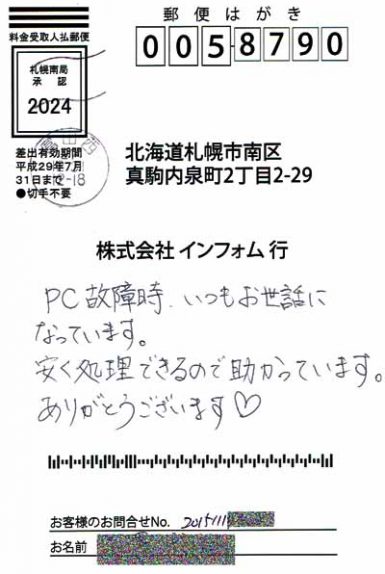 郵便はがき
0058790
料金受取人払郵便
札幌南局
承認
2024
差出有効期間
平成29年7月
31日まで
●切手不要
北海道札幌市南区
真駒内泉町2丁目2-29
株式会社 インフォム 行
PC故障時、いつもお世話に
なっています。
安く処理できるので助かっています。
ありがとうございます♡
お客様のお問合せNo. 20151119
お名前